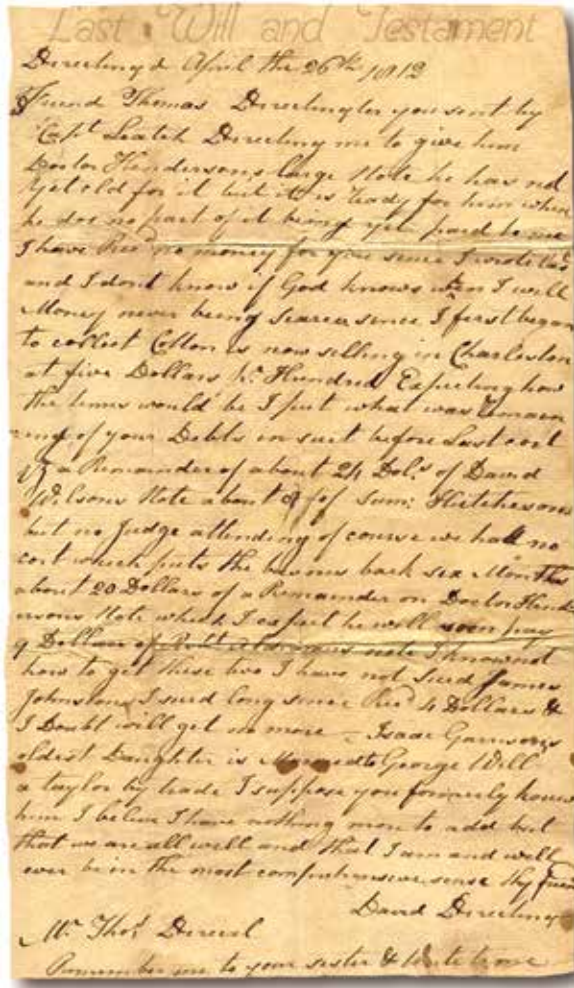 Last Will and Testament
April the 26th 1812
Friend Thomas you sent by
Capt me to give him
Doctor Hendersons large Note he has not
yet for it but it is ready for him when
he no part of it being yet paid to me
I have Recd no money for you since I wrote
and I dont know if God knows when I will
Money never being Scarcer since I first began
to collect Cotton is now selling in Charleston
at five Dollars Pr Hundred Expecting how
the times would be I put what was Remain
ing of your Debts in suit before Last cort
a Remainder of about 24 Dols of David
Wilsons Note about of Saml Hutchesons
but no Judge attending of course we had no
cort which puts the back six Months
about 20 Dollars of a Remainder on Doctor Hend
ersons Note which I expect he will soon pay
9 Dollars of Robt note I know not
how to get these two I have not Sued James
Johnston I sued long since Recd 4 Dollars &
I Doubt will get no more - Isaac
oldest Daughter is to George Will
a taylor by trade I suppose you formerly knew
him I belive I have nothing more to add but
that we are all well and that I am and will
ever be in the most comprehensive sense thy friend
David
Mr Thos
Remember me to your sister & Write to me